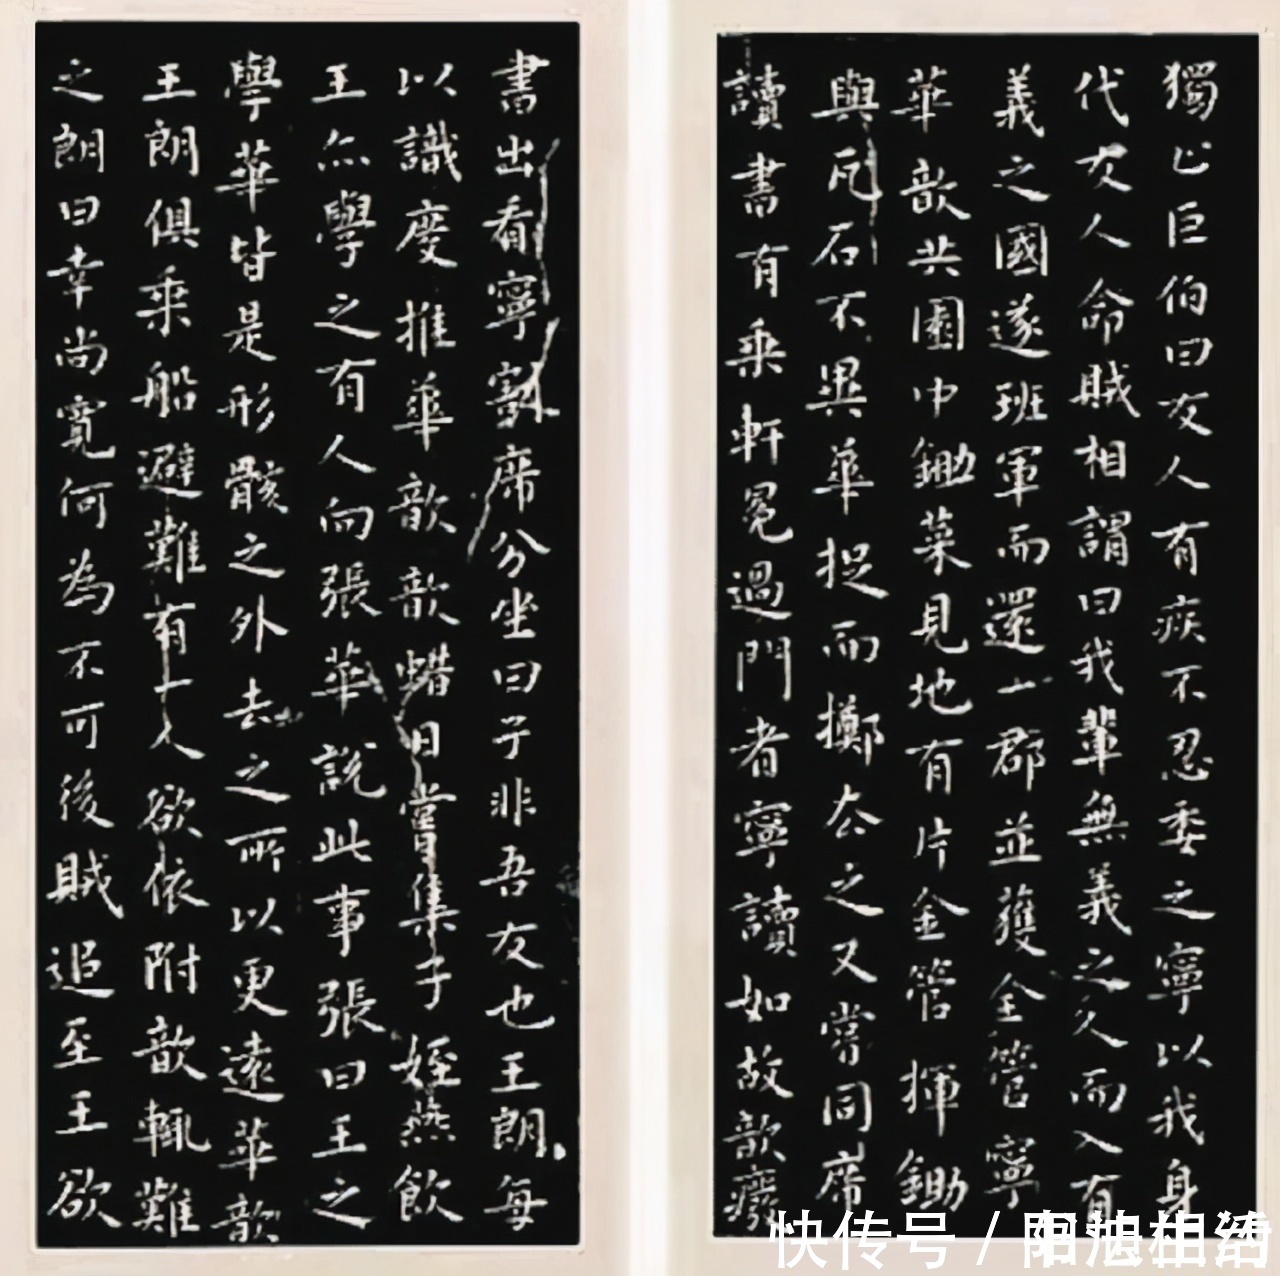 獨止巨伯曰友人有疾不忍委之寧以我身
代友人命賊相謂曰我輩無義之人而入有
義之國遂班軍而還一郡並獲全管寧
華歆共園中鋤菜見地有片金管揮鋤
與瓦石不異華捉而擲去之又嘗同席
讀書有乘軒冕過門者寧讀如故歆廢
書出看寧割席分坐曰子非吾友也王朗每
以識度推華歆歆蜡日嘗集子姪燕飲
王亦學之有人向張華說此事張曰王之
學華皆是形骸之外去之所以更遠華歆
王朗俱乘船避難有一人欲依附歆輒難
之朗曰幸尚寬何為不可後賊追至王欲
快传号 /